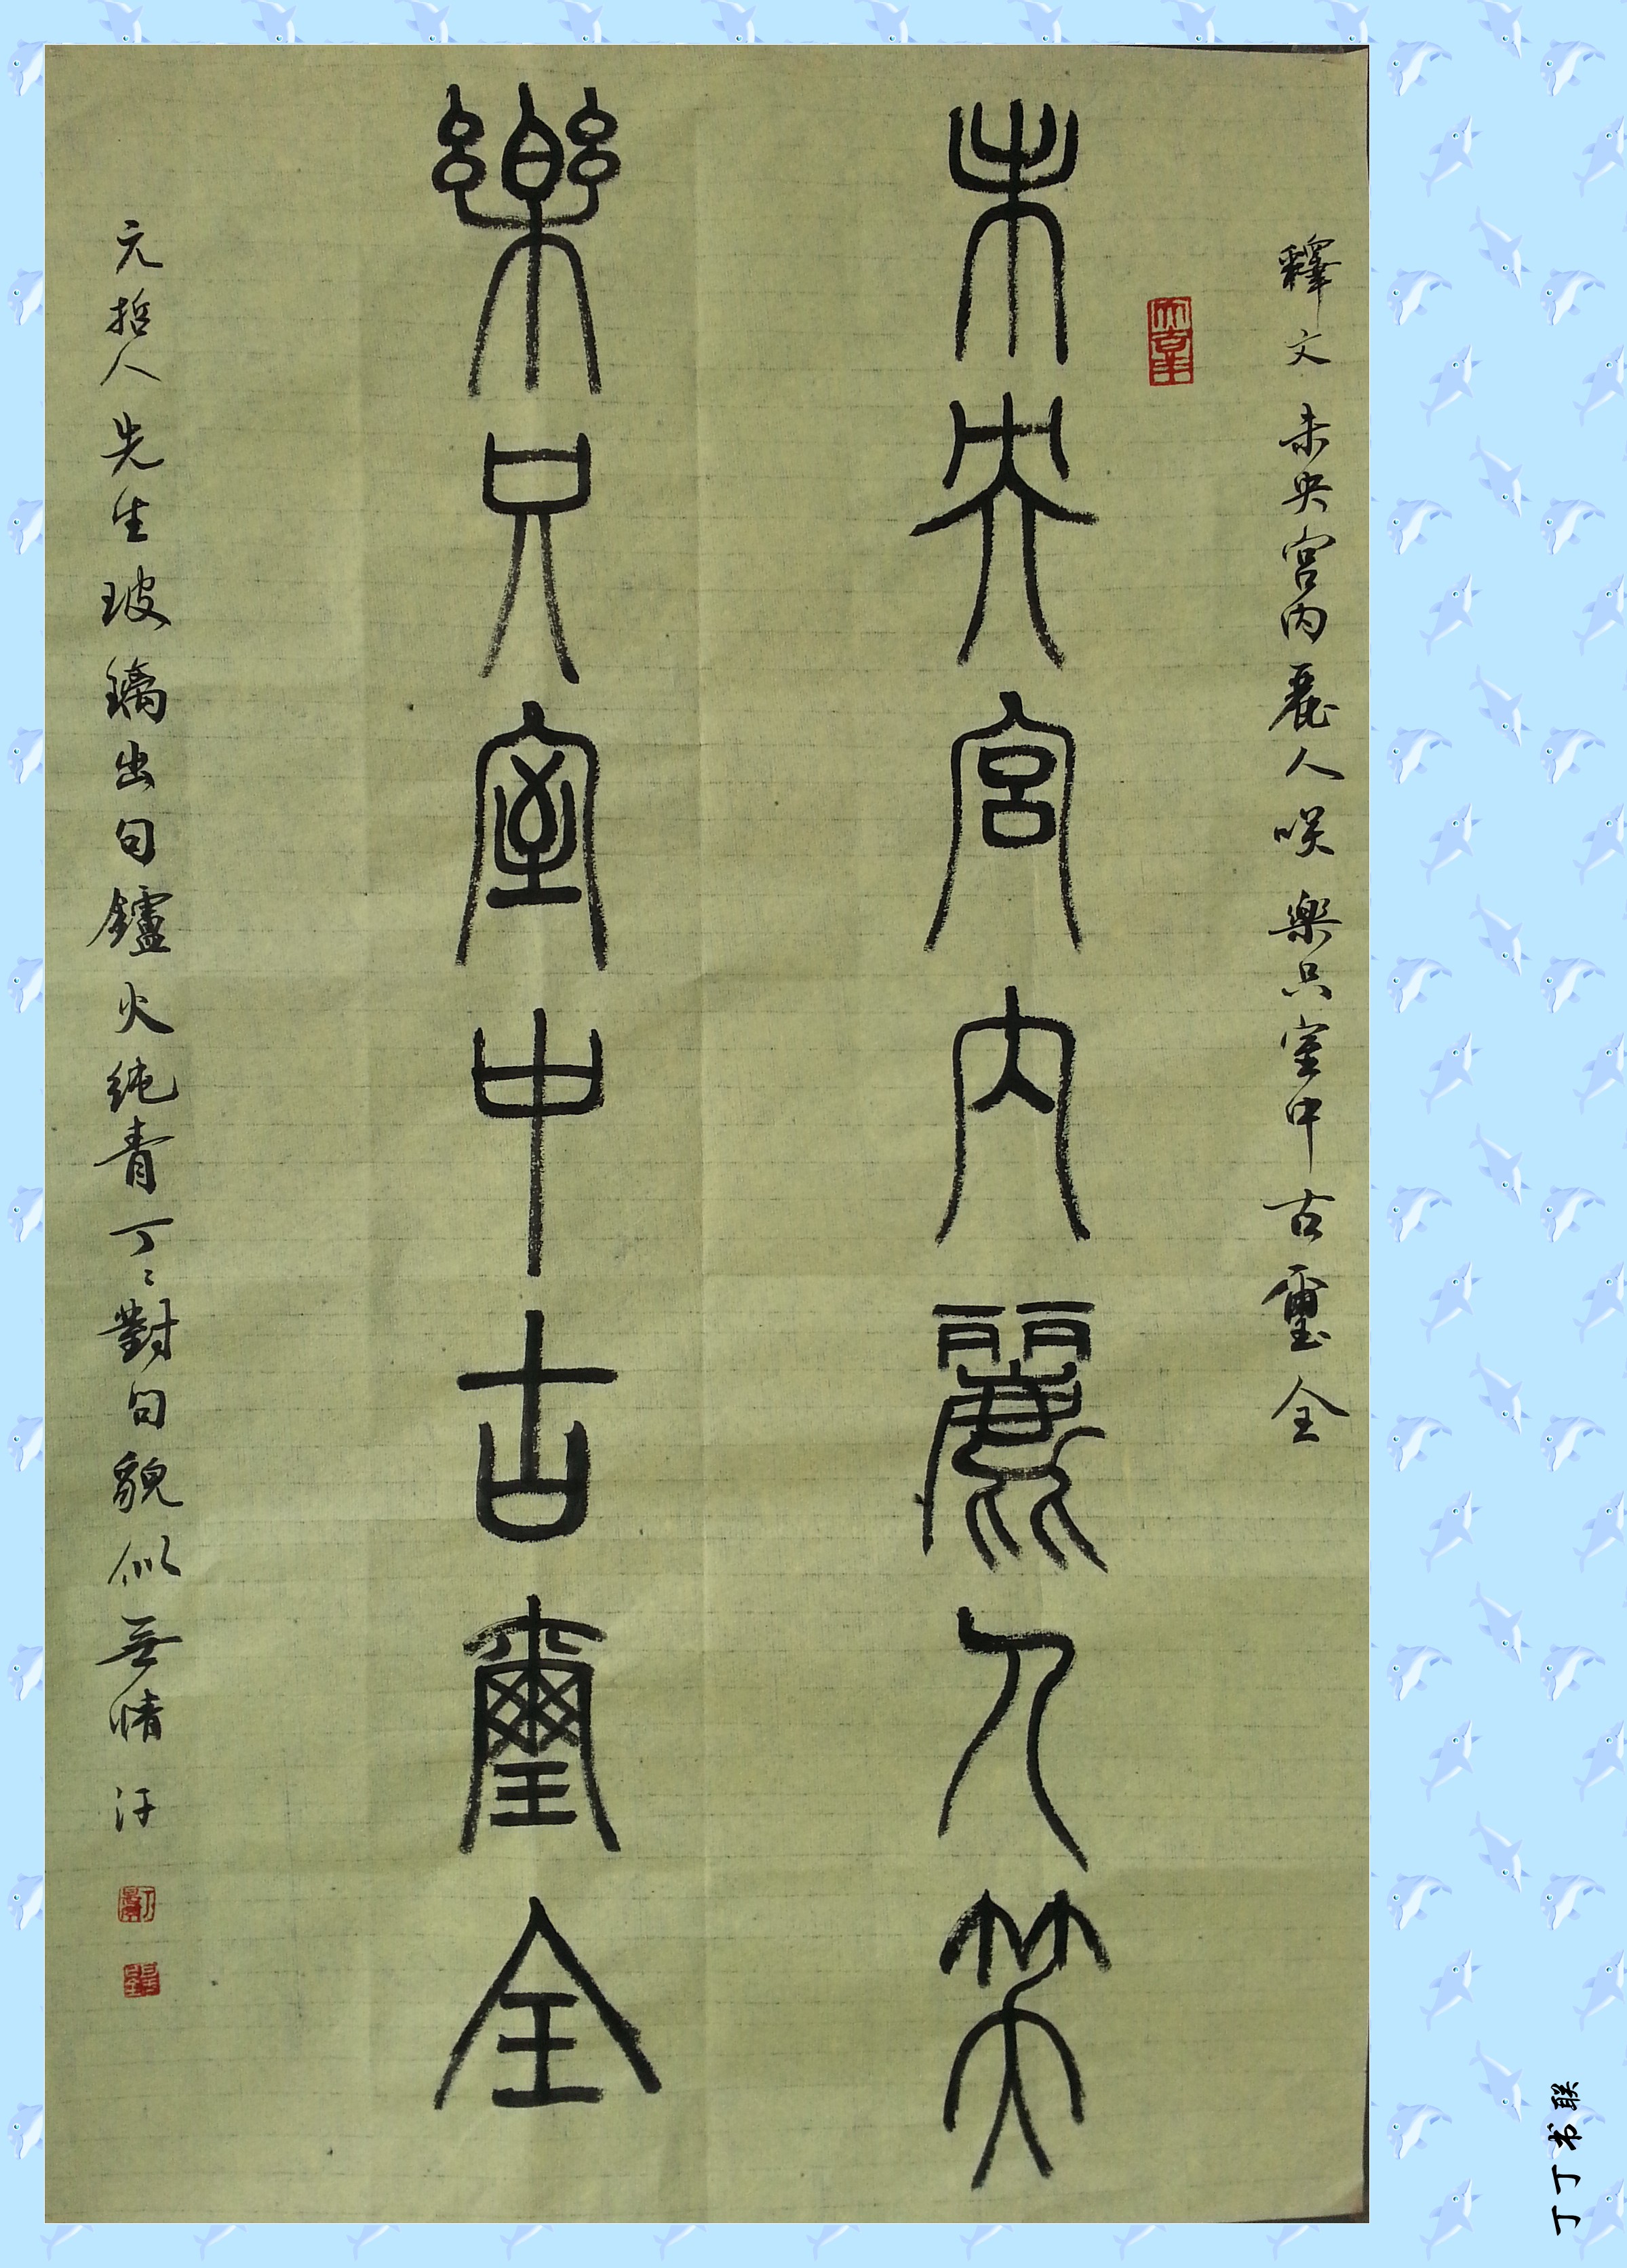 釋文 未央宮内麗人咲 樂只室中古璽全
未央宮内麗人笑
樂只室中古璽全
元哲人先生玻璃出句鑪火纯青丁〻對句貌似無情 汗
丁丁书联